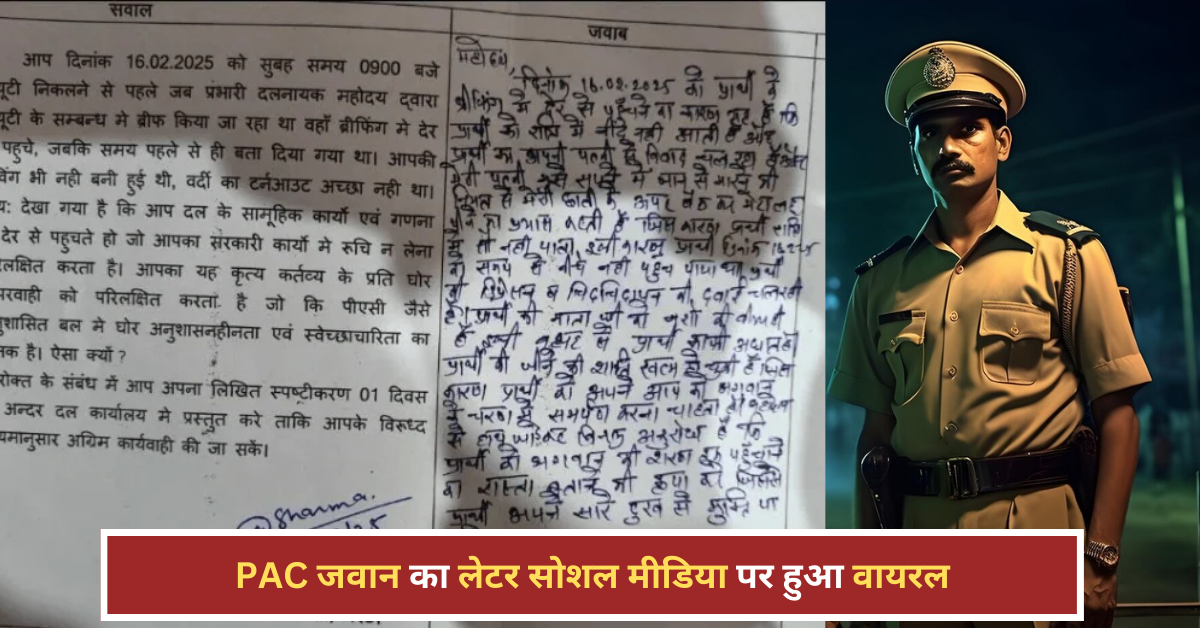 सवाल
आप दिनांक 16.02.2025 को सुबह समय 0900 बजे
निकलने से पहले जब प्रभारी दलनायक महोदय द्वारा
के सम्बन्ध मे ब्रीफ किया जा रहा था वहाँ ब्रीफिंग मे देर
पहुचे, जबकि समय पहले से ही बता दिया गया था। आपकी
भी नही बनी हुई थी, वर्दी का टर्नआउट अच्छा नही था।
देखा गया है कि आप दल के सामूहिक कार्यो एवं गणना
देर से पहुचते हो जो आपका सरकारी कार्यो मे रुचि न लेना
करता है। आपका यह कृत्य कर्तव्य के प्रति घोर
को परिलक्षित करता है जो कि पीएसी जैसे
बल मे घोर अनुशासनहीनता एवं स्वेच्छाचारिता का
है। ऐसा क्यों ?
के संबंध में आप अपना लिखित स्पष्टीकरण 01 दिवस
अन्दर दल कार्यालय मे प्रस्तुत करे ताकि आपके विरूध्द
अग्रिम कार्यवाही की जा सकें।
Sharma.
जवाब
महोदय,
दिनांक 16.02.2025 को प्रार्थी के
ब्रीफिंग में देर से पहुँचने का कारण यह है कि
प्रार्थी को रात्रि में नींद नही आती है और
प्रार्थी का अपनी पत्नी से विवाद चल रहा है
मेरी पत्नी मुझे सपने में जान से मारने की
से मेरी छाती के ऊपर बैठ कर मेरा
पीने का प्रयास करती है जिस कारण प्रार्थी रात्रि
में सो नही पाता, इसी कारण प्रार्थी दिनांक
को समय से नही पहुँच पाया था, प्रार्थी
की डिप्रेशन व चिड़चिड़ापन की दवाई चल रही
है। प्रार्थी की माता जी को नशो की बीमारी
है से प्रार्थी काफी
प्रार्थी की जीने की खत्म हो चुकी है जिस
कारण प्रार्थी अपने आप को भगवान
के चरणों में समर्पण करना चाहता
से अनुरोध है कि
प्रार्थी को भगवान की शरण में पहुँचाने
का रास्ता बताने की कृपा करे जिससे
प्रार्थी अपने सारे दुख से मुक्ति पा
PAC जवान का लेटर सोशल मीडिया पर हुआ वायरल